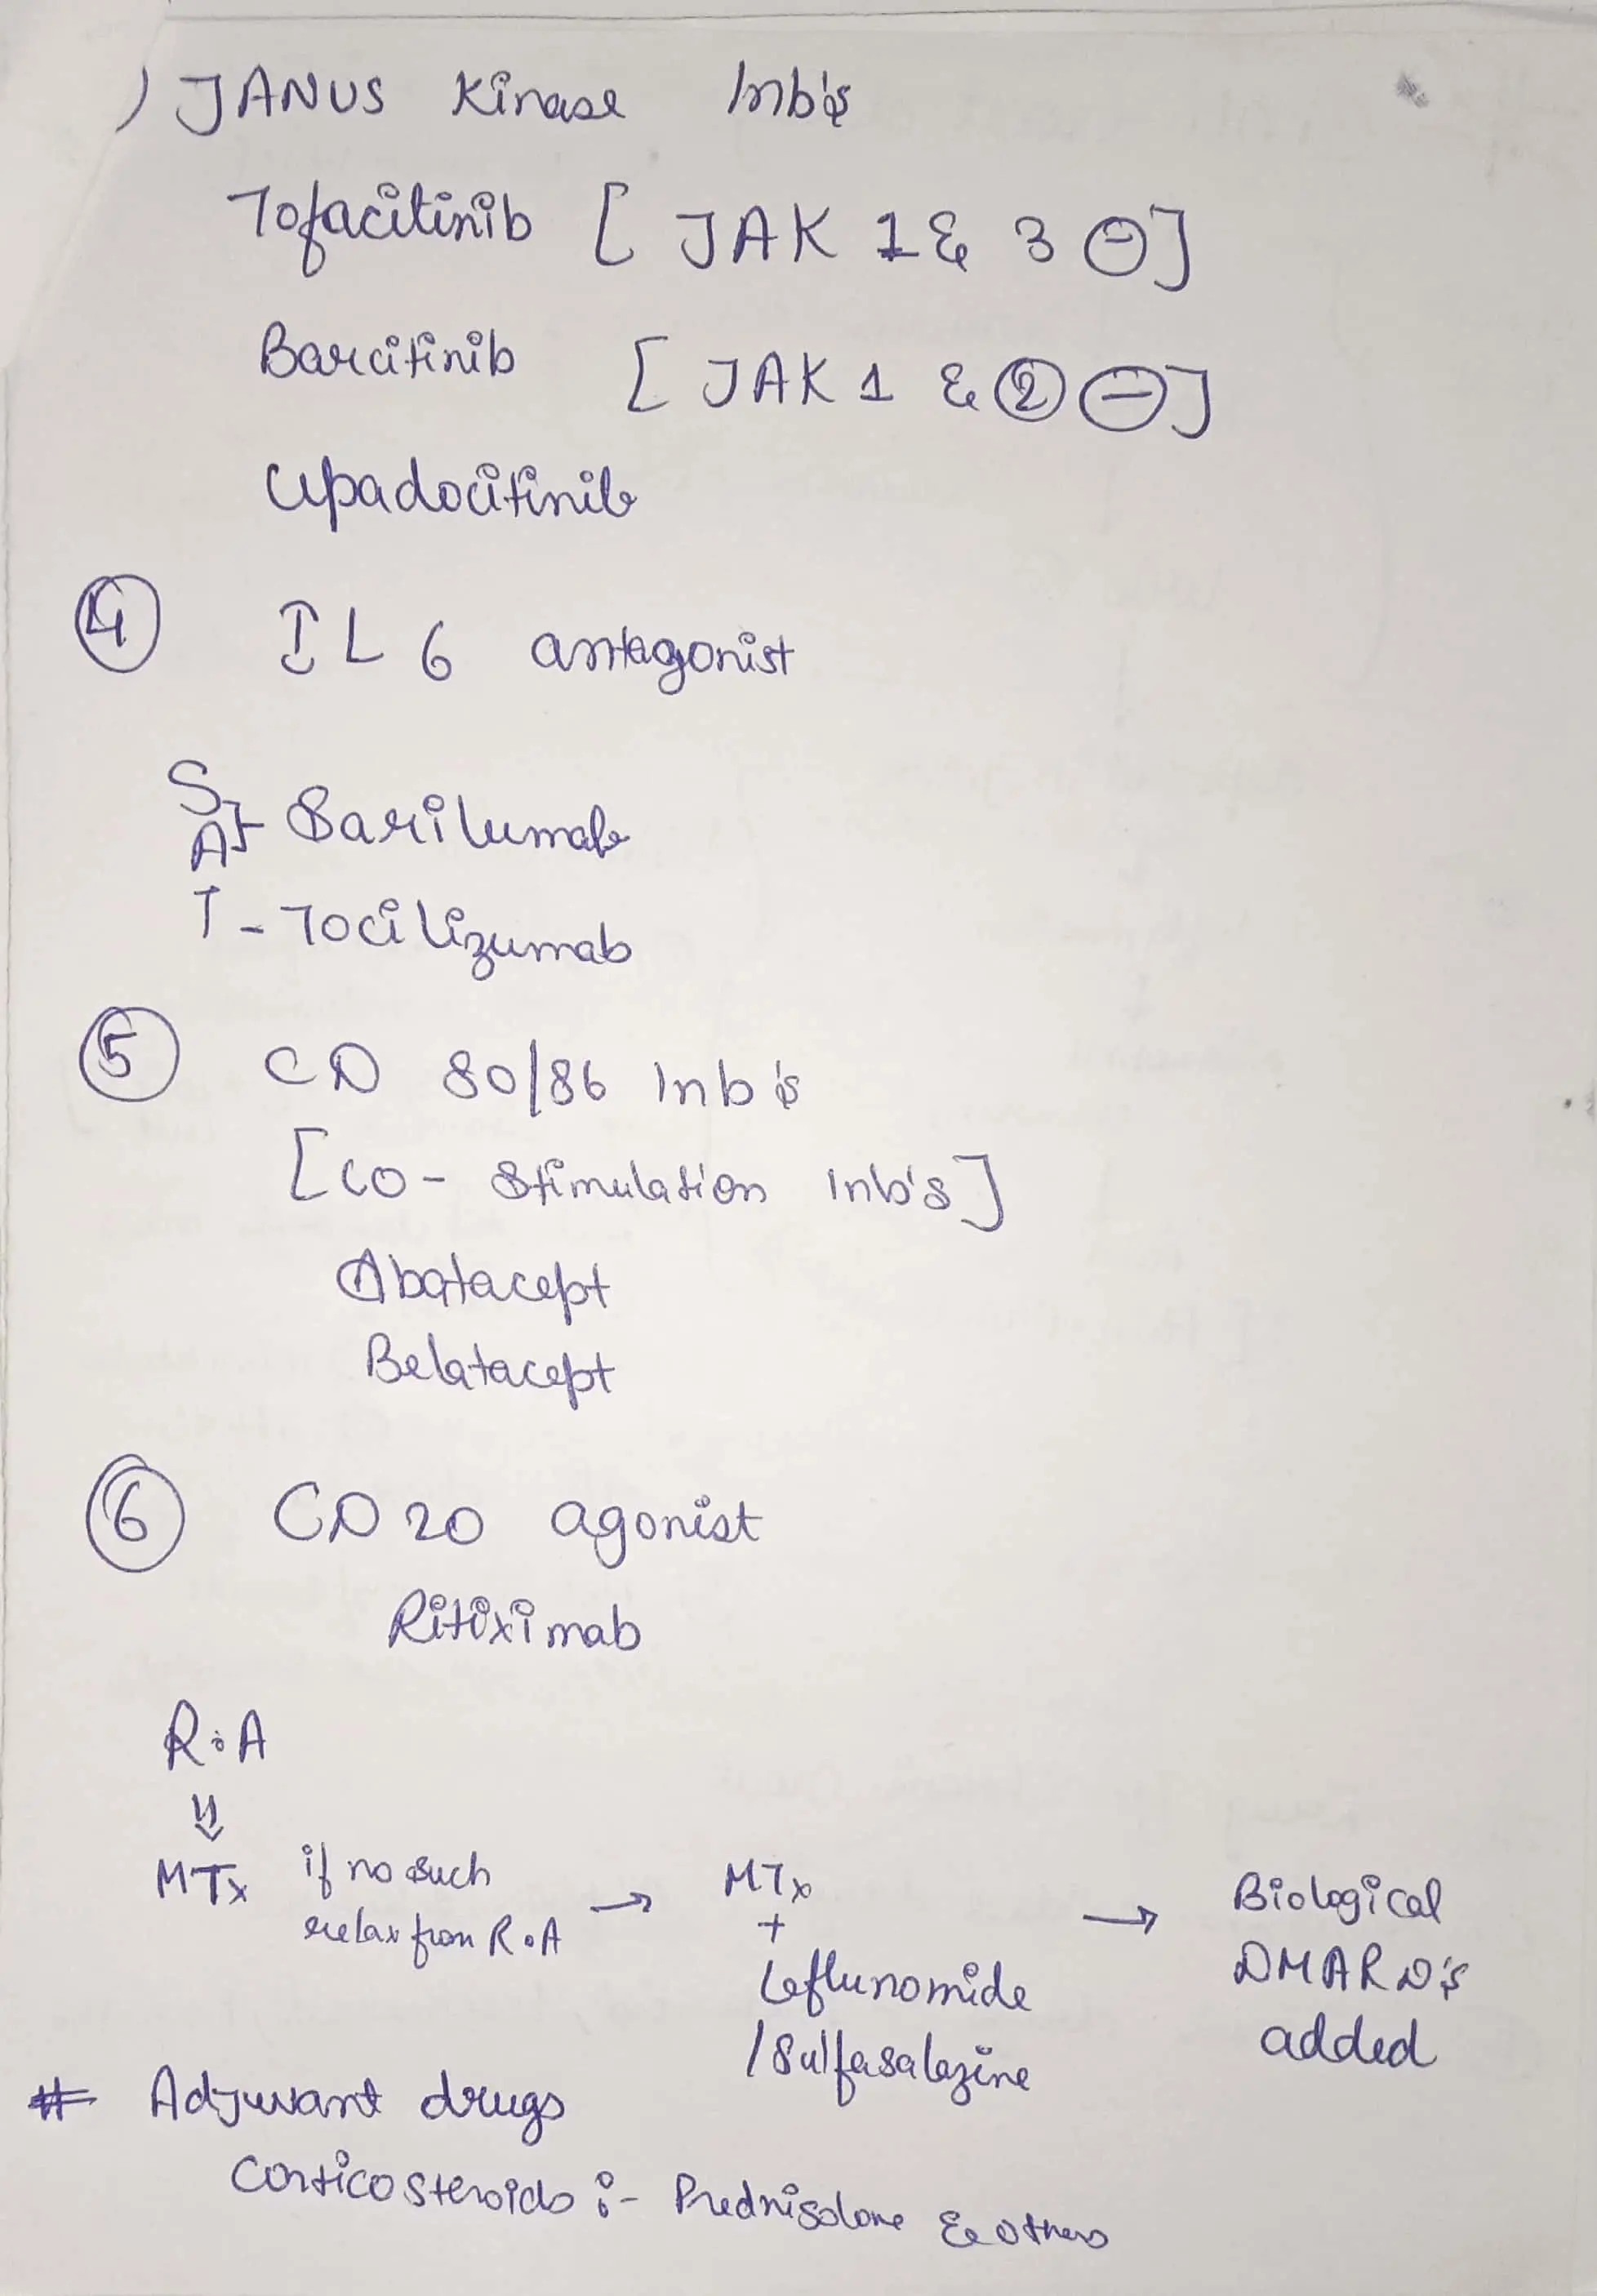 ) JANUS Kinase Inb's
Tofacitinib [ JAK 1 & 3 ⊖]
Baricitinib [ JAK 1 & ② ⊖]
Upadocitinib
④ IL 6 antagonist
S
A} Sarilumab
T - Tocilizumab
⑤ CD 80/86 Inb's
[CO- Stimulation Inb's]
Abatacept
Belatacept
⑥ CD 20 agonist
Ritiximab
R.A
⇓
MTx if no such relax from R.A → MTx + Leflunomide /Sulfasalazine → Biological DMARD's added
# Adjuvant drugs
Corticosteroids :- Prednisolone & others